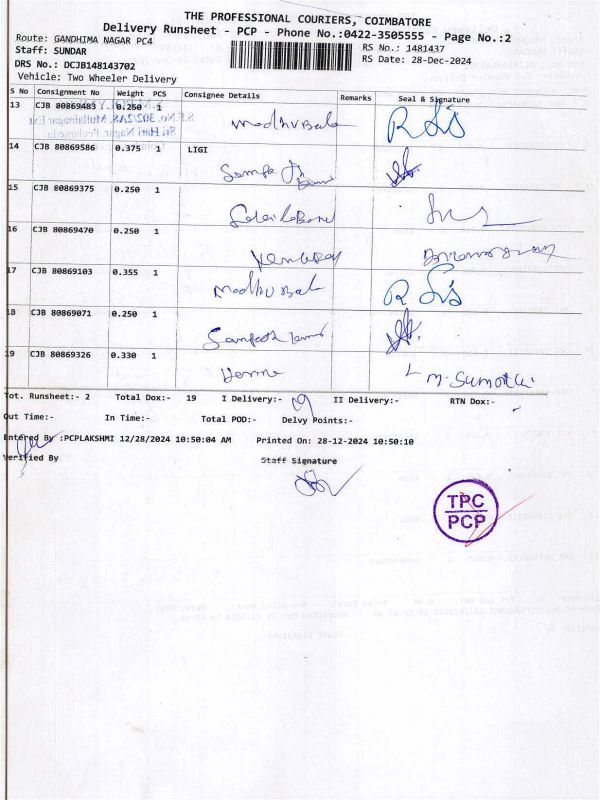 THE PROFESSIONAL COURIERS, COIMBATORE
Delivery Runsheet - PCP - Phone No.:0422-3505555 - Page No.:2
Route: GANDHIMA NAGAR PC4 RS No.: 1481437
Staff: SUNDAR RS Date: 28-Dec-2024
DRS No.: DCJB148143702
Vehicle: Two Wheeler Delivery
S No Consignment No Weight PCS Consignee Details Remarks Seal & Signature
13 CJB 80869483 0.250 1
Madhubala
14 CJB 80869586 0.375 1 LIGI
15 CJB 80869375 0.250 1
16 CJB 80869470 0.250 1
17 CJB 80869103 0.355 1
Madhubala
18 CJB 80869071 0.250 1
19 CJB 80869326 0.330 1
Tot. Runsheet:- 2 Total Dox:- 19 I Delivery:- II Delivery:- RTN Dox:-
Out Time:- In Time:- Total POD:- Delvy Points:-
Entered By :PCPLAKSHMI 12/28/2024 10:50:04 AM Printed On: 28-12-2024 10:50:10
Verified By Staff Signature
TPC
PCP